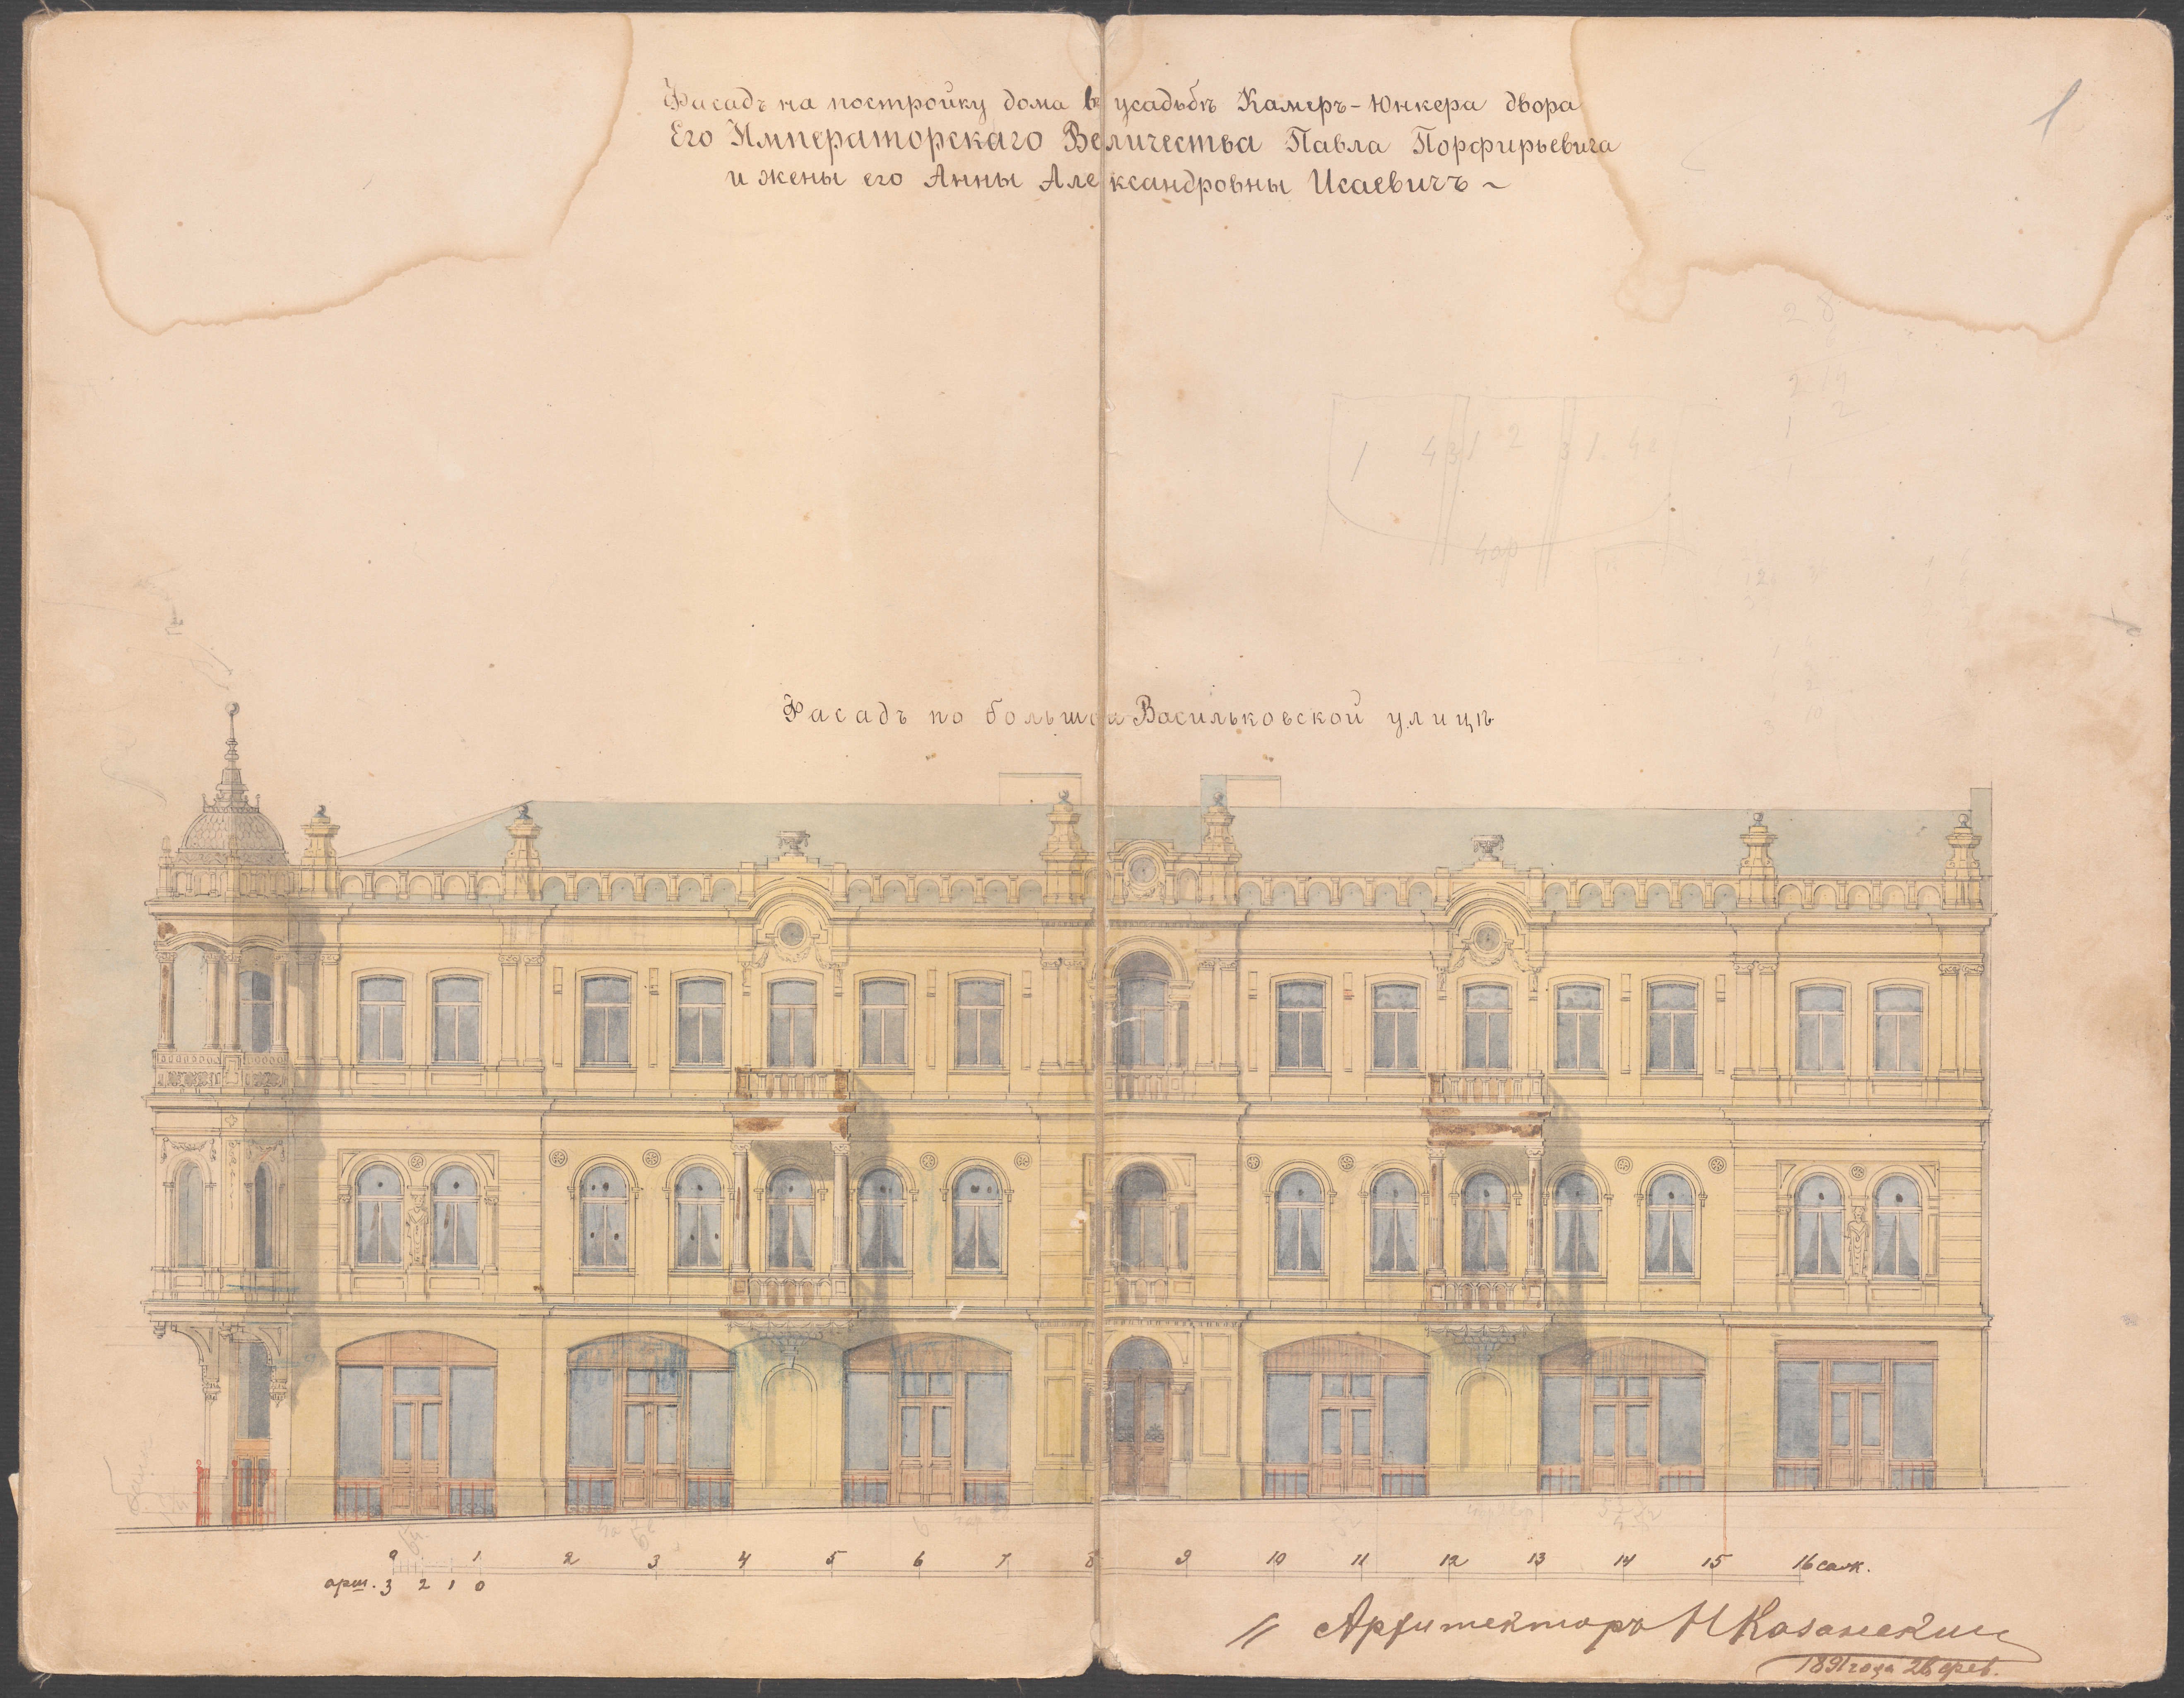 1
Фасадъ на постройку дома въ усадьбѣ Камеръ-Юнкера двора
Его Императорскаго Величества Павла Порфирьевича
и жены его Анны Александровны Исаевичъ ~
2
1 4 3 1 2 3 1. 4
Фасадъ по большой Васильковской улицѣ
0 1 2 3 4 5 6 7 8 9 10 11 12 13 14 15 16 саж.
арш. 3 2 1 0
Архитекторъ Н Казанский
1891 года фев.